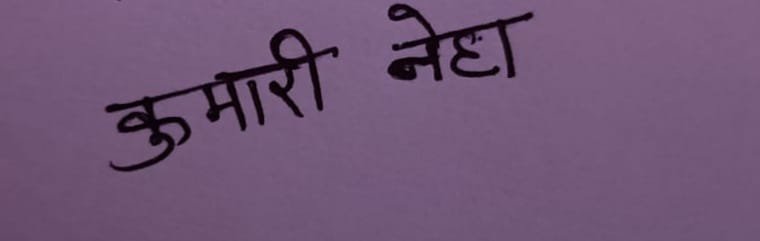 कुमारी नेहा